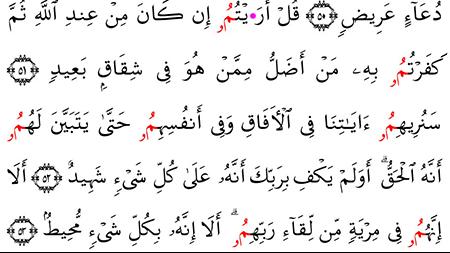 دُعَآءٍ عَرِيضٖ ۝٥٠ قُلْ أَرَ•يْتُمُۥ إِن كَانَ مِنْ عِندِ اللَّهِ ثُمَّ
كَفَرْتُمُۥ بِهِۦ مَنْ أَضَلُّ مِمَّنْ هُوَ فِي شِقَاقِۭ بَعِيدٖ ۝٥١
سَنُرِيهِمُۥ ءَايَـٰتِنَا فِي الْأٓفَاقِ وَفِي أَنفُسِهِمُۥ حَتَّىٰ يَتَبَيَّنَ لَهُمُۥ
أَنَّهُ الْحَقُّ ۗ أَوَلَمْ يَكْفِ بِرَبِّكَ أَنَّهُۥ عَلَىٰ كُلِّ شَيْءٖ شَهِيدٌ ۝٥٢ أَلَا
إِنَّهُمُۥ فِي مِرْيَةٖ مِّن لِّقَآءِ رَبِّهِمُۥ ۗ أَلَا إِنَّهُۥ بِكُلِّ شَيْءٖ مُّحِيطٌۢ ۝٥٣